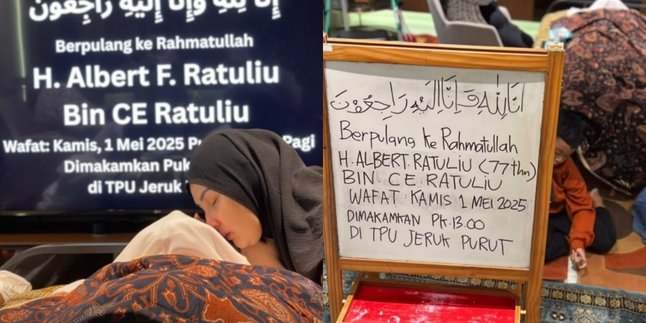 إِنَّا لِلَّهِ وَإِنَّا إِلَيْهِ رَاجِعُونَ
Berpulang ke Rahmatullah
H. Albert F. Ratuliu
Bin CE Ratuliu
Wafat: Kamis, 1 Mei 2025 Pagi
Dimakamkan
di TPU Jeruk
إنا لله وإنا إليه راجعون
Berpulang ke Rahmatullah
H. ALBERT. RATULIU (77thn)
BIN. CE. RATULIU
WAFAT: KAMIS 1 MEI 2025
DIMAKAMKAN Pk. 13.00
DI TPU JERUK PURUT